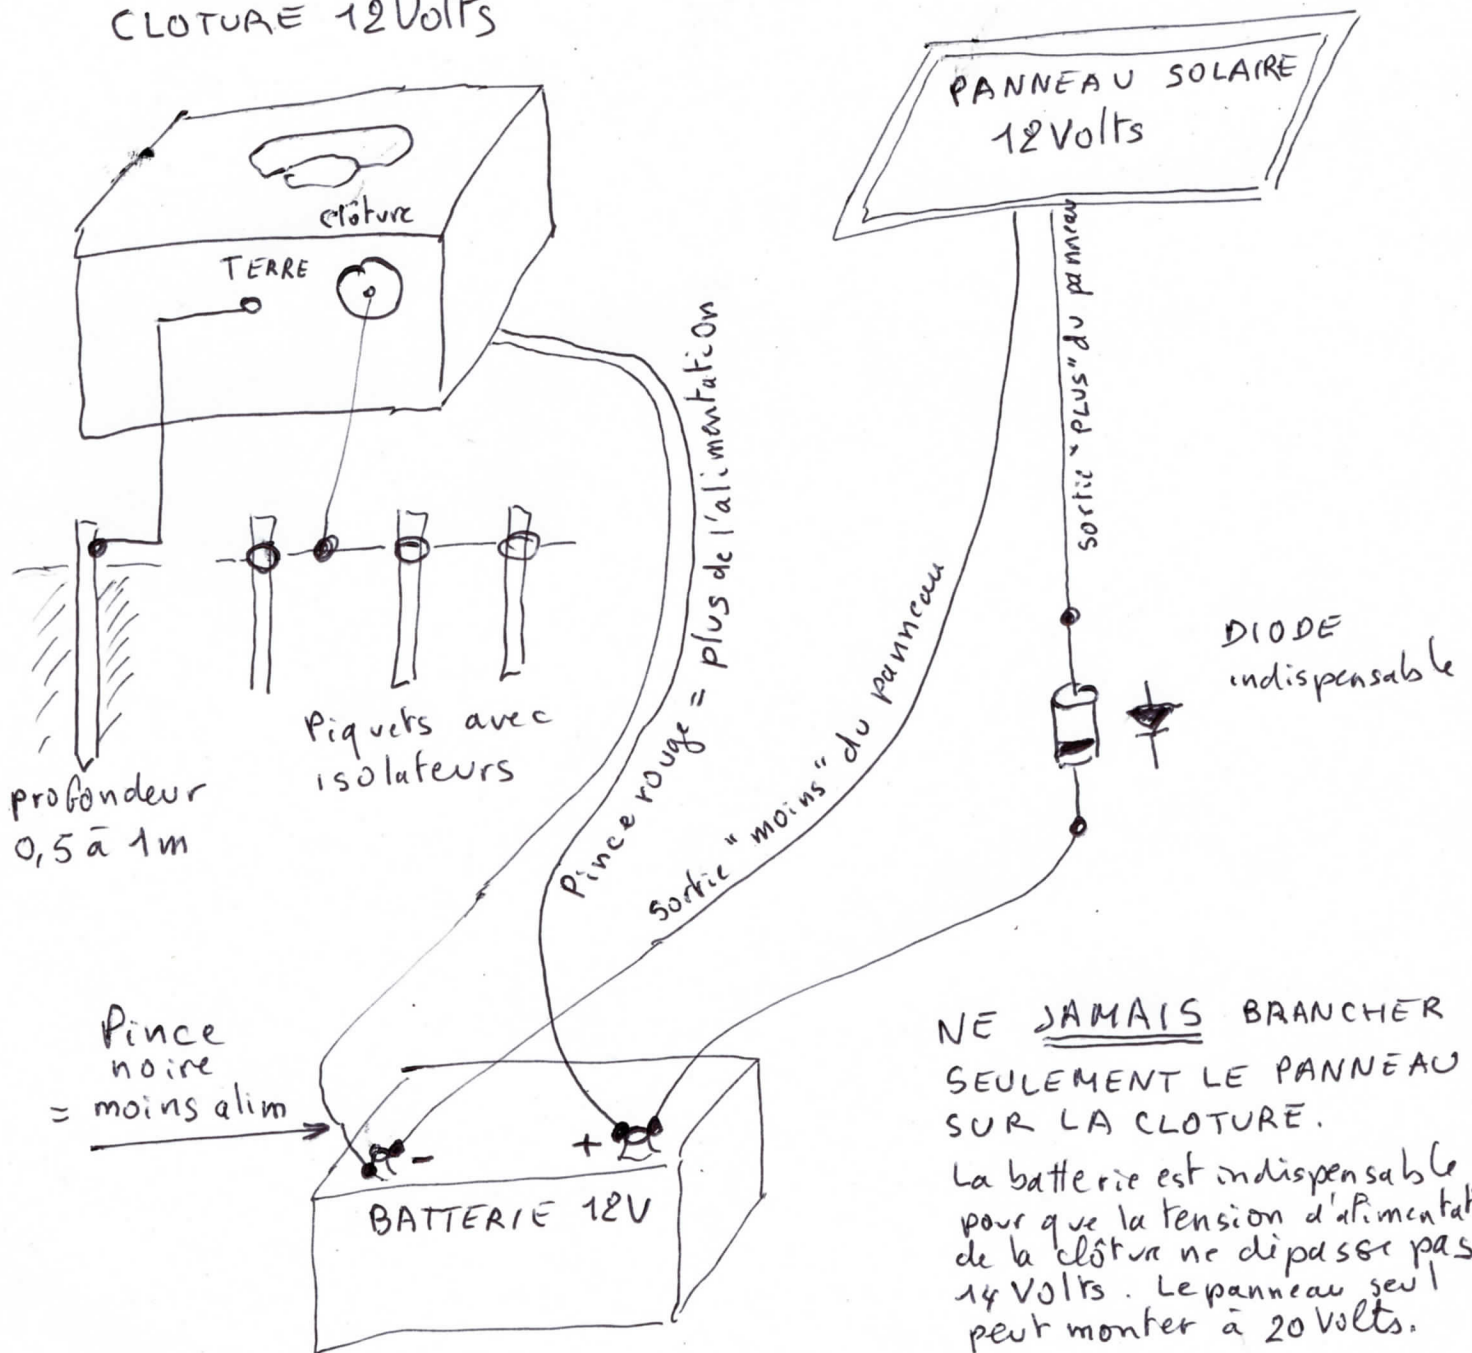 CLOTURE 12Volts
PANNEAU SOLAIRE
12Volts
clôture
TERRE
sortie "PLUS" du panneau
Pince rouge = plus de l'alimentation
sortie "moins" du panneau
DIODE
indispensable
Piquets avec
isolateurs
profondeur
0,5 à 1m
Pince
noire
= moins alim
- +
BATTERIE 12V
NE JAMAIS BRANCHER
SEULEMENT LE PANNEAU
SUR LA CLOTURE.
La batterie est indispensable
pour que la tension d'alimentat
de la clôture ne dépasse pas
14 Volts. Le panneau seul
peut monter à 20 Volts.